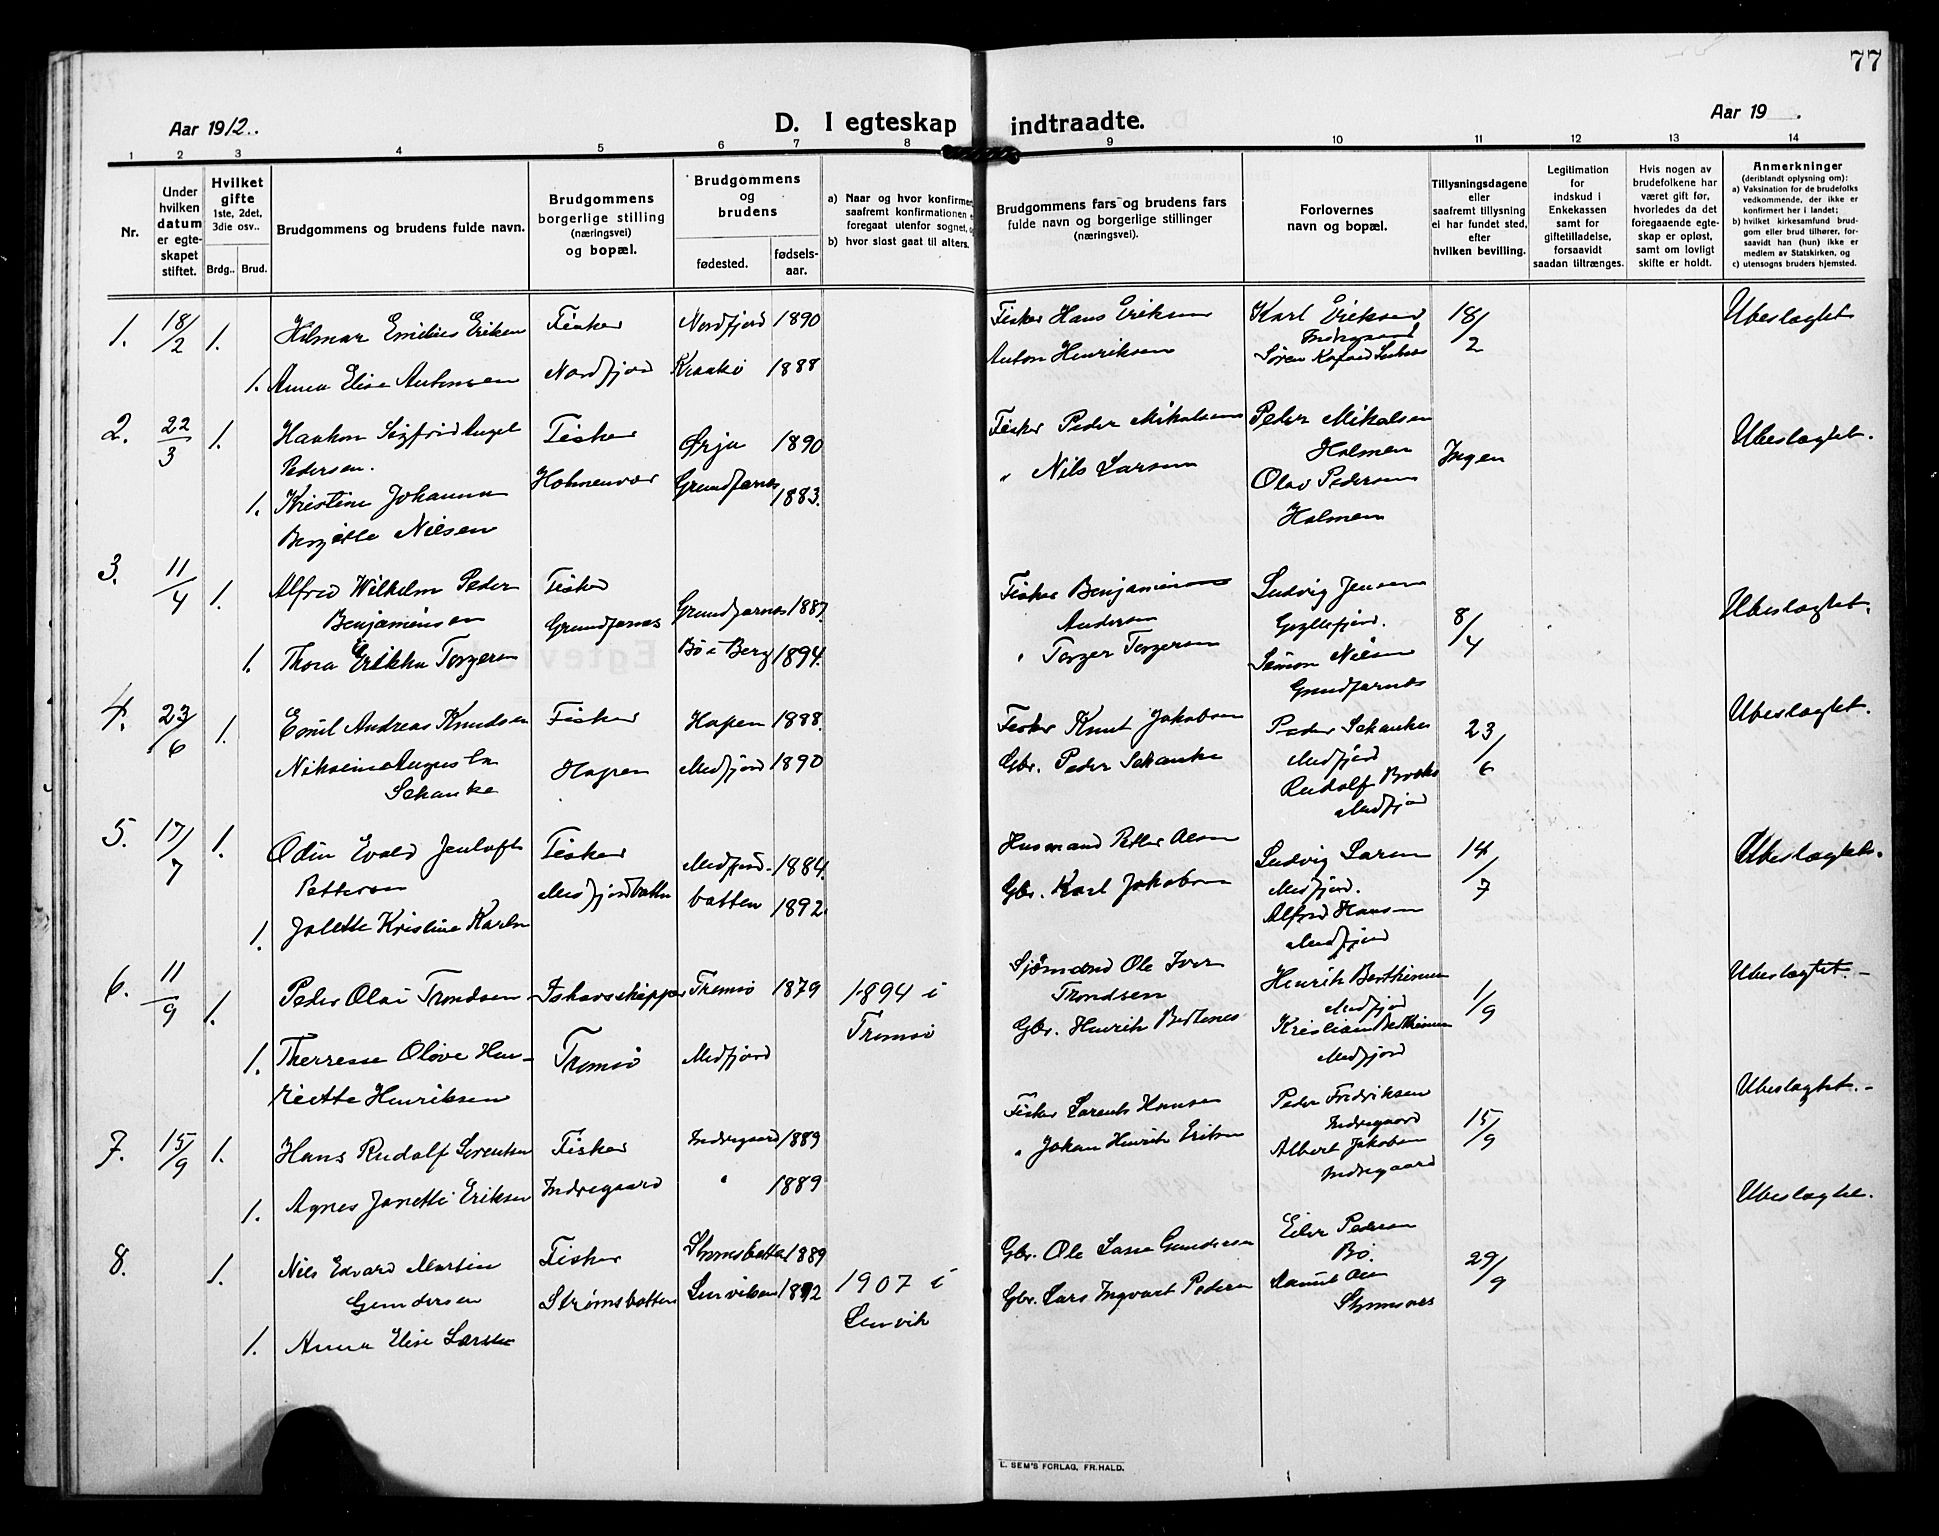 77
Aar 1912.
D. I egteskap indtraadte.
Aar 19 .
1 2 3 4 5 6 7 8 9 10 11 12 13 14
Nr.
Under hvilken datum er egteskapet stiftet.
Hvilket gifte 1ste, 2det, 3die osv..
Brdg.. Brud.
Brudgommens og brudens fulde navn.
Brudgommens borgerlige stilling (næringsvei) og bopæl.
Brudgommens og brudens
fødested.
fødsels-aar.
a) Naar og hvor konfirmer
saafremt konfirmationen
foregaat utenfor sognet,
b) hvor sidst gaat til alters.
Brudgommens fars og brudens fars
fulde navn og borgerlige stillinger
(næringsvei).
Forlovernes
navn og bopæl.
Tillysningsdagene
eller
saafremt tillysning
ei har fundet sted,
efter
hvilken bevilling.
Legitimation
for
indskud i
Enkekassen
samt for
giftetilladelse,
forsaavidt
saadan tiltrænges.
Hvis nogen av
brudefolkene har
været gift før,
hvorledes da det
foregaaende egte-
skap er opløst,
samt om lovligt
skifte er holdt.
Anmerkninger
(deriblandt oplysning om):
a) Vaksination for de brudefolks
vedkommende, der ikke er
konfirmert her i landet;
b) hvilket kirkesamfund brud-
gom eller brud tilhører, for-
saavidt han (hun) ikke er
medlem av Statskirken, og
c) utensogns bruders hjemsted.
1. 18/2 1. Hilmar Emilius Eriksen Fisker Nordfjord 1890 Fisker Hans Eriksen Karl Eriksen 18/2 Ubeslagtet
Indregaard
1. Anna Elise Antonsen Nordfjord 1888 Anton Henriksen Søren
2. 22/3 1. Haakon Sigfrid Angel Fisker Ørja 1890 Fisker Peder Mikalsen Peder Mikalsen Ingen Ubeslagtet.
Pedersen. Holmenvær Grundfarnes " Nils Larsen Holmen
1. Kristine Johanna 1883. Olav Pedersen
Bergitte Nilsen Holmen
3. 11/4 1. Alfred Wilhelm Peder Fisker Grundfarnes 1887. Fisker Benjamin Ludvig Jensen 8/4 Ubeslagtet.
Benjaminsen Grundfarnes Andersen Gryllefjord.
1. Thora Erikka Torgersen Bø i Berg 1894. " Torger Torgersen Simon Nilsen
Grundfarnes
4. 23/6 1. Emil Andreas Knudsen Fisker Hopen 1888. Fisker Knut Jakobsen Peder Schanke 23/6 Ubeslagtet.
Nikoline Augusta Hopen Medfjord 1890 Gbr. Peder Schanke Medfjord
Schanke Rudolf
Medfjord
5. 17/7 1. Odin Evald Jenloft Fisker Medfjord- 1884. Husmand Petter Olsen Ludvig Larsen 14/7 Ubeslagtet.
Pettersen Medfjordbotten botten 1892. Gbr. Karl Jakobsen Medfjord.
1. Jolette Kristine Karlsen Alfred Hansen
Medfjord
6. 11/9 1. Peder Olai Trondsen Ishavsskipper Tromsø 1879 1894 i Sjømand Ole Iver Henrik Berthinsen 1/9 Ubeslagtet.-
Tromsø Trondsen Medfjord
1. Therresse Olove Hen- Tromsø Medfjord Gbr. Henrik Kristian Berthinsen
riette Henriksen Medfjord
7. 15/9 1. Hans Rudolf Sørentsen Fisker Indregaard 1889 Fisker Sørents Hansen Peder Fredriksen 15/9 Ubeslagtet.-
Indregaard
1. Agnes Janetti Eriksen Indregaard " 1889 " Johan Henrik Eriksen Albert Jakobsen
Indregaard
8. 1. Nils Edvard Martin Fisker Strømsbotten 1889 1907 i Gbr. Ole Lasse Gundersen Eiler Pedersen 29/9 Ubeslagtet.
Gundersen Strømsbotten 1892 Lenvik Gbr. Lars Ingvart Pedersen Bø.
1. Anna Elise Larsen Strømsnes
L. SEM'S FORLAG, FR.HALD.